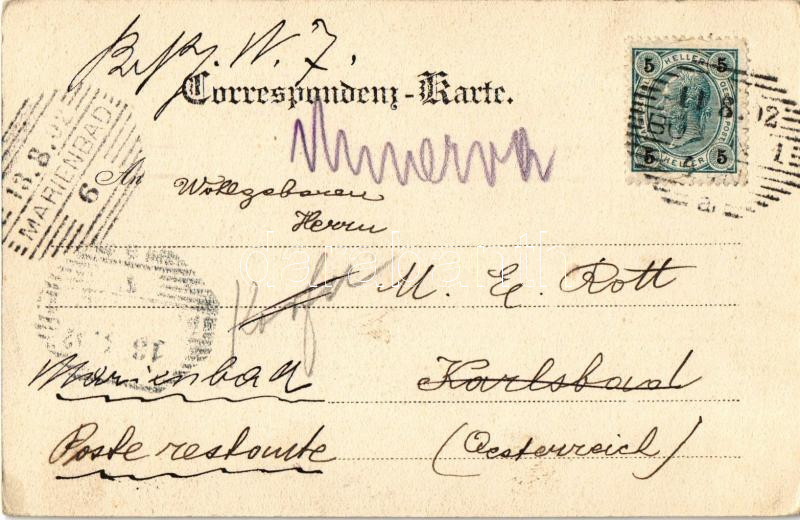 Correspondenz-Karte.
Minerva
5 HELLER 5
5 HELLER 5
11 8. 02
13.8.02
MARIENBAD
6
An Wohlgeboren
Herrn
M. E. Rott
Marienbad Karlsbad
Poste restante (Oesterreich)
darabanth